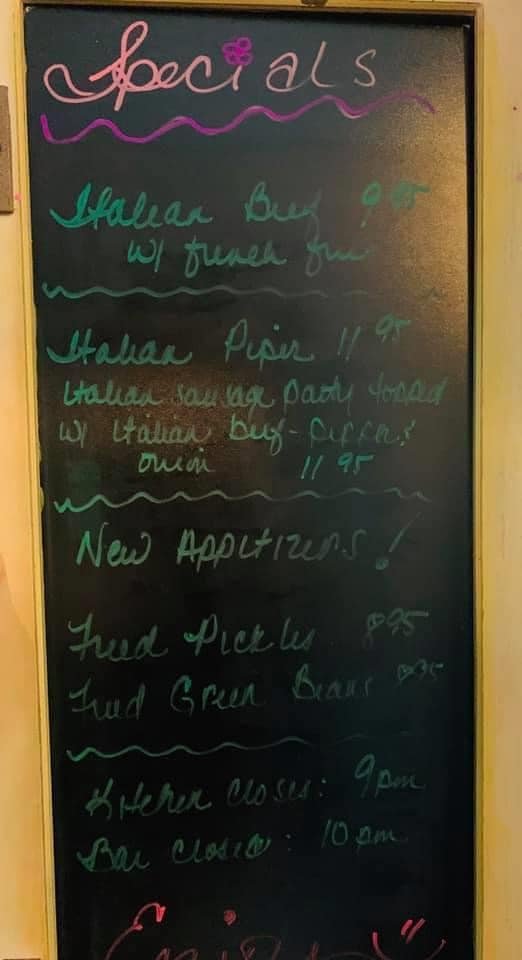 Specials
Italian Beef 9 95
w/ french fries
Italian Piper 11 95
Italian sausage patty topped
w/ Italian beef - pepper &
onion 11 95
New Appetizers!
Fried Pickles 8 95
Fried Green Beans
Kitchen closes: 9pm
Bar closes: 10pm